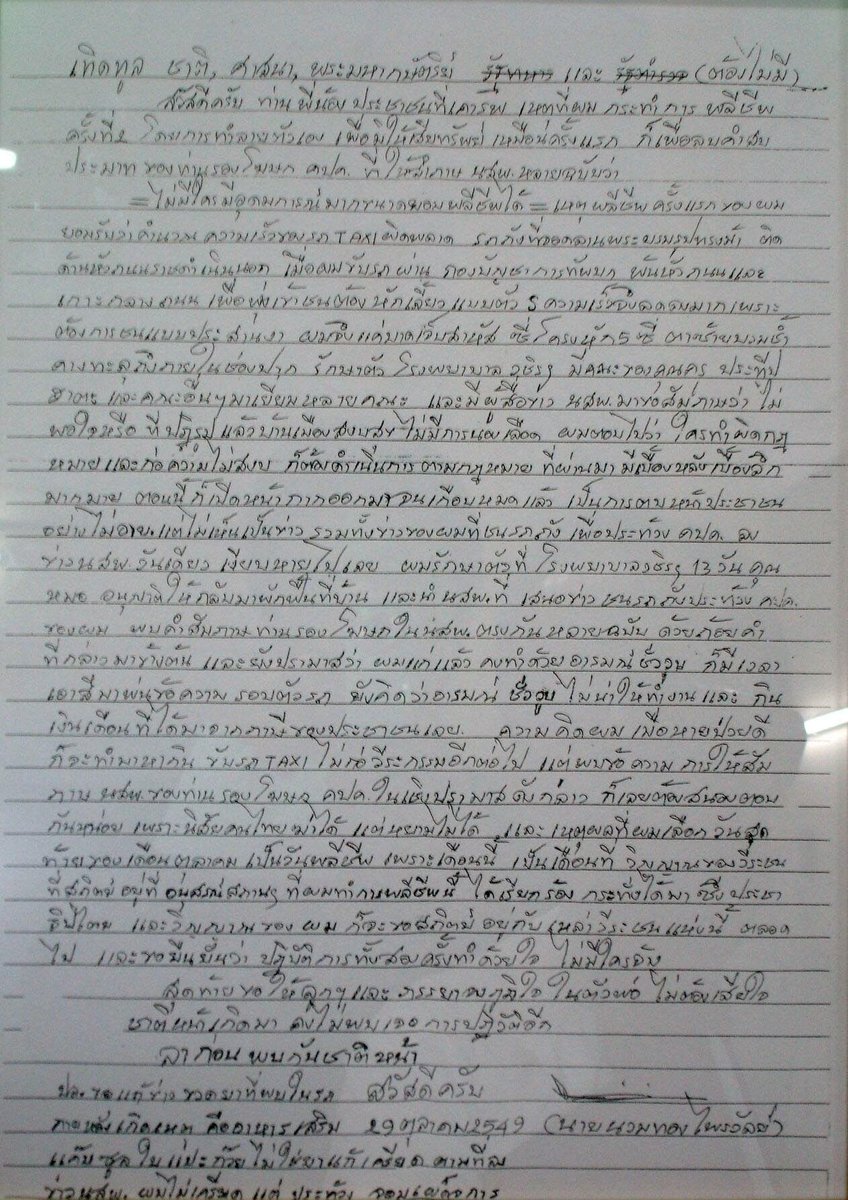 เทิดทูล ชาติ, ศาสนา, พระมหากษัตริย์ รัฐทหาร และ รัฐตำรวจ (ต้องไม่มี)
สวัสดีครับ ท่านพี่น้องประชาชนที่เคารพ เหตุที่ผมกระทำการ พลีชีพ
ครั้งที่ 2 โดยการทำลายตัวเอง เพื่อมิให้เสียทรัพย์เหมือนครั้งแรก ก็เพื่อลบคำสบ
ประมาท ของท่านรองโฆษก คปค. ที่ให้สำภาษ นสพ. หลายฉบับว่า
= ไม่มีใครมีอุดมการณ์มากขนาดยอมพลีชีพได้ = เหตุพลีชีพครั้งแรกของผม
ยอมรับว่าคำนวณความเร็วของรถ TAXI ผิดพลาด รถถังที่จอดลานพระบรมรูปทรงม้า ติด
ด้านหัวถนนราชดำเนินนอก เมื่อผมขับรถผ่าน กองบัญชาการทัพบก พ้นหัวถนนและ
เกาะกลางถนน เพื่อพุ่งเข้าชนต้องหักเลี้ยวแบบตัว S ความเร็วจึงลดลงมากเพราะ
ต้องการชนแบบประสานงา ผมจึงแค่บาดเจ็บสาหัส ซี่โครงหัก 5 ซี่ ตาซ้ายบวมช้ำ
คางทะลุถึงภายในช่องปาก รักษาตัว โรงพยาบาล วชิรฯ มีคณะของคุณครู ประทีป
ฮาตะ และคณะอื่นๆ มาเยี่ยมหลายคณะ และมีผู้สื่อข่าว นสพ. มาขอสัมภาษว่า ไม่
พอใจหรือ ที่ปฏิรูปแล้วบ้านเมืองสงบสุข ไม่มีการนองเลือด ผมตอบไปว่า ใครทำผิดกฎ
หมายและก่อความไม่สงบ ก็ต้องดำเนินการตามกฎหมาย ที่ผ่านมา มีเบื้องหลังเบื้องลึก
มากมาย ตอนนี้ก็เปิดหน้ากากออกมาจนเกือบหมดแล้ว เป็นการตบหน้าประชาชน
อย่างไม่อาย. แต่ไม่เห็นเป็นข่าว รวมทั้งข่าวของผมที่ชนรถถัง เพื่อประท้วง คปค. ลง
ข่าว นสพ. วันเดียว เงียบหายไปเลย ผมรักษาตัวที่ โรงพยาบาลวชิรฯ 13 วัน คุณ
หมอ อนุญาติให้กลับมาพักฟื้นที่บ้าน และนำ นสพ. ที่ เสนอข่าว ชนรถถังประท้วง คปค.
ของผม พบคำสัมภาษท่านรองโฆษกใน นสพ. ตรงกันหลายฉบับ ด้วยถ้อยคำ
ที่กล่าวมาข้างต้น และยังปรามาสว่า ผมแก่แล้ว คงทำด้วยอารมณ์ชั่ววูบ ก็มีเวลา
เอาสีมาพ่นข้อความ รอบตัวรถ ยังคิดว่าอารมณ์ ชั่ววูบ ไม่น่าให้ทำงานและ กิน
เงินเดือนที่ได้มาจากภาษีของประชาชนเลย. ความคิดผม เมื่อหายป่วยดี
ก็จะทำมาหากิน ขับรถ TAXI ไม่ก่อวีระกรรมอีกต่อไป แต่พบข้อความ การให้สัม
ภาษ นสพ. ของท่านรองโฆษก คปค. ในเชิงปรามาสดังกล่าว ก็เลยต้องสนองตอบ
กันหน่อย เพราะนิสัยคนไทยฆ่าได้ แต่หยามไม่ได้ และ เหตุผลที่ผมเลือก วันสุด
ท้ายของเดือนตุลาคม เป็นวันพลีชีพ เพราะเดือนนี้ เป็นเดือนที่ วิญญาณของวีระชน
ที่สถิตย์ อยู่ที่ อนุสรณ์สถานฯ ที่ผมทำการพลีชีพนี้ ได้เรียกร้อง กระทั่งได้มา ซึ่งประชา
ธิปไตย และวิญญาณของ ผม ก็จะขอสถิตย์ อยู่กับ เหล่าวีระชนแห่งนี้ ตลอด
ไป และขอยืนยันว่า ปฏิบัติการทั้งสองครั้งทำด้วยใจ ไม่มีใครจ้าง
สุดท้ายขอให้ลูกๆ และ ภรรยาจงภูมิใจ ในตัวพ่อ ไม่ต้องเสียใจ
ชาติหน้าเกิดมา คงไม่พบเจอ การปฏิวัติอีก
ลาก่อน พบกันชาติหน้า
ปล. ขอแก้ข่าว ขวดยาที่พบในรถ สวัสดีครับ
ภายหลังเกิดเหตุ คืออาหารเสริม 29 ตุลาคม 2549 (นายนวมทอง ไพรวัลย์)
แค็ปซูลใบแปะก๊วย ไม่ใช่ยาแก้เครียด ตามที่ลง
ข่าว นสพ. ผมไม่เครียด แต่ ประท้วง จอมเผด็จการ